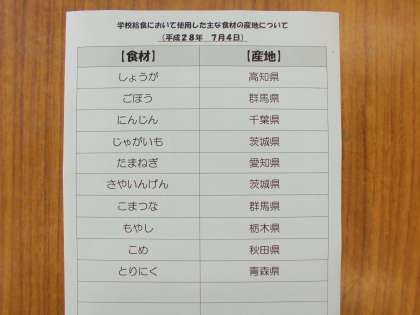 学校給食において使用した主な食材の産地について
(平成28年 7月4日)
【食材】 【産地】
しょうが 高知県
ごぼう 群馬県
にんじん 千葉県
じゃがいも 茨城県
たまねぎ 愛知県
さやいんげん 茨城県
こまつな 群馬県
もやし 栃木県
こめ 秋田県
とりにく 青森県